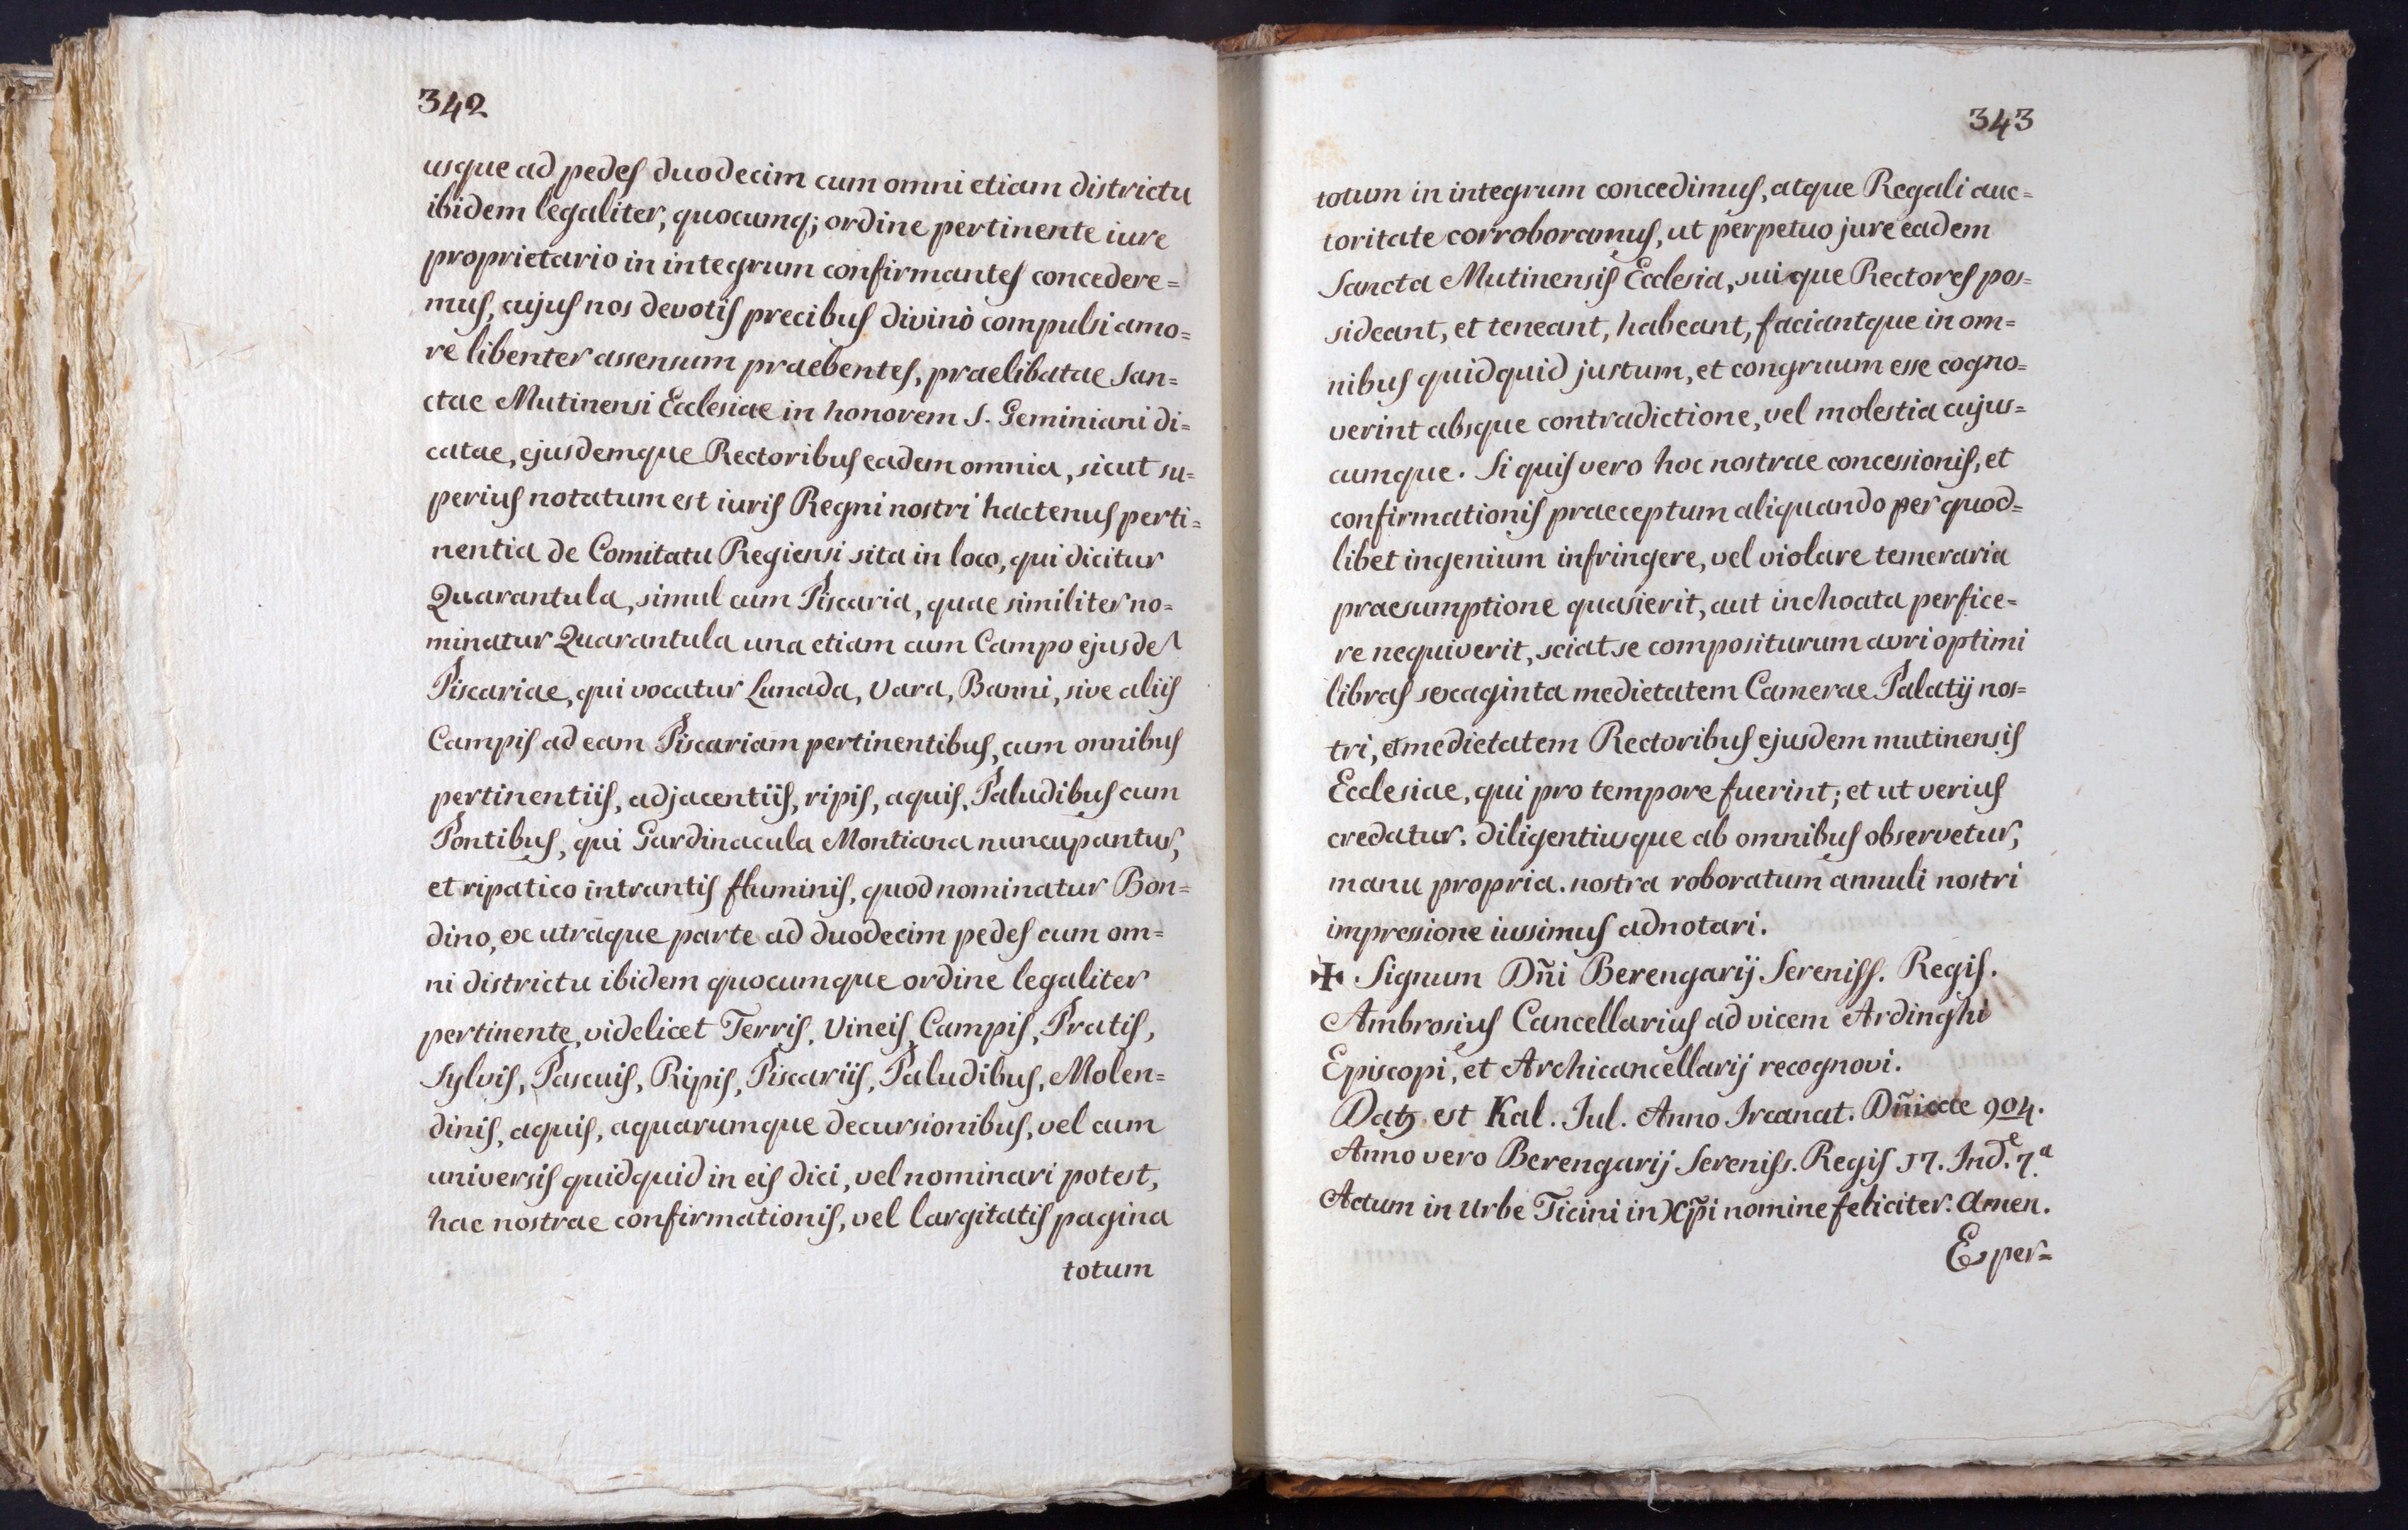 342
usque ad pedes duodecim cum omni etiam districtu
ibidem legaliter, quocumq; ordine pertinente iure
proprietario in integrum confirmantes concedere=
mus, cujus nos devotis precibus divinò compulsi amo=
re libenter assensum praebentes, praelibatae San=
ctae Mutinensi Ecclesiae in honorem S. Geminiani di=
catae, ejusdemque Rectoribus eadem omnia, sicut su=
perius notatum est iuris Regni nostri hactenus perti=
nentia de Comitatu Regiensi sita in loco, qui dicitur
Quarantula, simul cum Piscaria, quae similiter no=
minatur Quarantula una etiam cum Campo ejusde
Piscariae, qui vocatur Lunada, Vara, Banni, sive aliis
Campis ad eam Piscariam pertinentibus, cum omnibus
pertinentiis, adjacentiis, ripis, aquis, Paludibus cum
Pontibus, qui Gardinacula Montiana nuncupantur,
et ripatico intrantis fluminis, quod nominatur Bon=
dino, ex utraque parte ad duodecim pedes cum om=
ni districtu ibidem quocumque ordine legaliter
pertinente, videlicet Terris, Vineis, Campis, Pratis,
Sylvis, Pascuis, Ripis, Piscariis, Paludibus, Molen=
dinis, aquis, aquarumque decursionibus, vel cum
universis quidquid in eis dici, vel nominari potest,
hac nostrae confirmationis, vel largitatis pagina
totum
343
totum in integrum concedimus, atque Regali auc=
toritate corroboramus, ut perpetuo jure eadem
Sancta Mutinensis Ecclesia, suique Rectores pos=
sideant, et teneant, habeant, faciantque in om=
nibus quidquid justum, et congruum esse cogno=
verint absque contradictione, vel molestia cujus=
cumque. Si quis vero hoc nostrae concessionis, et
confirmationis praeceptum aliquando per quod=
libet ingenium infringere, vel violare temeraria
praesumptione quasierit, aut inchoata perfice=
re nequiverit, sciat se compositurum auri optimi
libras sexaginta medietatem Camerae Palatij nos=
tri, et medietatem Rectoribus ejusdem mutinensis
Ecclesiae, qui pro tempore fuerint; et ut verius
credatur, diligentiusque ab omnibus observetur,
manu propria. nostra roboratum annuli nostri
impressione iussimus adnotari.
✠. Signum Dñi Berengarij Sereniss. Regis.
Ambrosius Cancellarius ad vicem Ardinghi
Episcopi, et Archicancellarij recognovi.
Datȝ est Kal. Jul. Anno Ircanat. Dñicae 904.
Anno vero Berengarij Sereniss. Regis 17. Ind.e 7.a
Actum in Urbe Ticini in Xp̃i nomine feliciter. Amen.
E per=